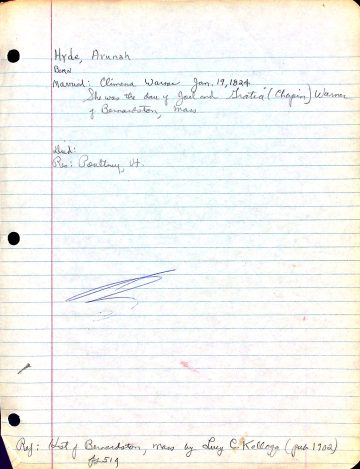 Hyde, Arunah
Born
Married: Climena Warner Jan. 19, 1824
She was the dau of Joel and "Gratia" (Chapin) Warner
of Bernardston, Mass
Died:
Res: Poultney, Vt.
Ref: Hist of Bernardston, Mass by Lucy C. Kellogg (pub 1902)
p 519